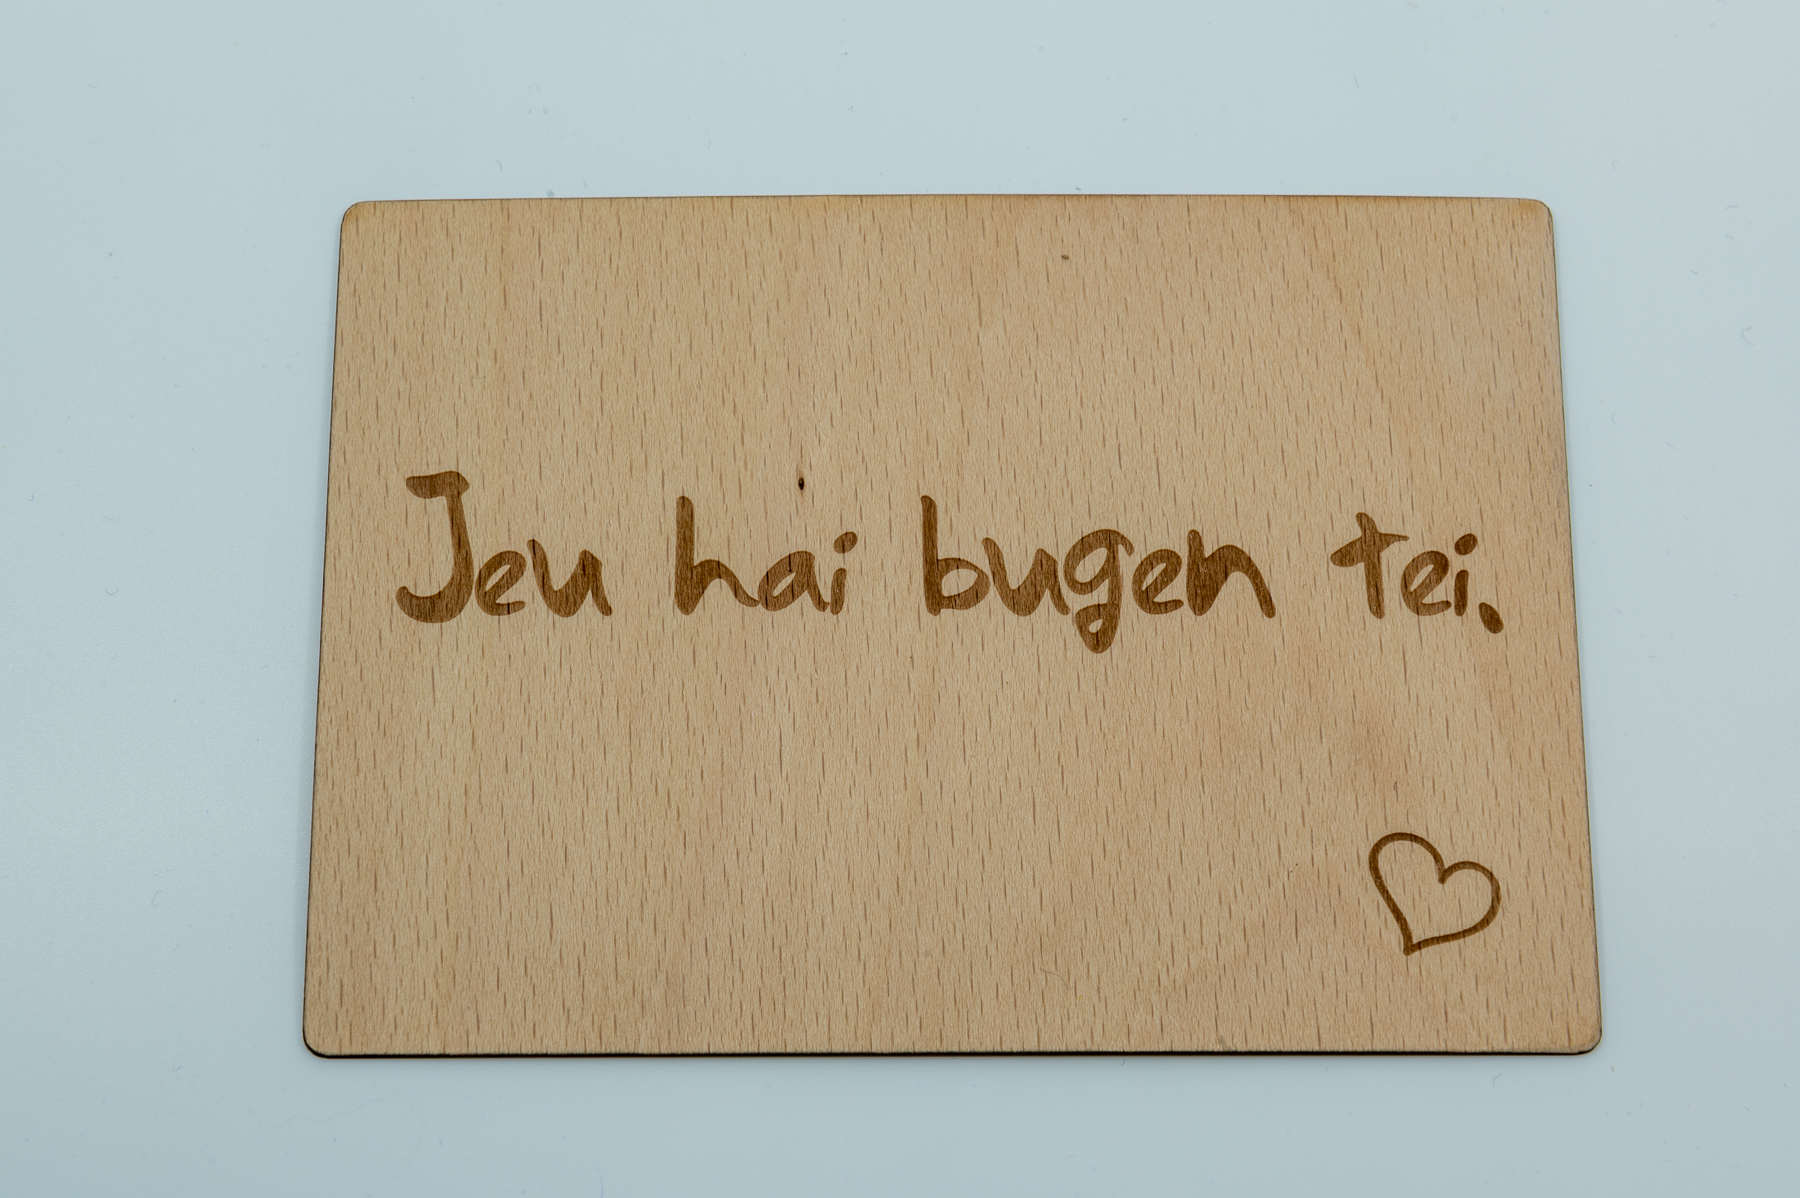 Jeu hai bugen tei.